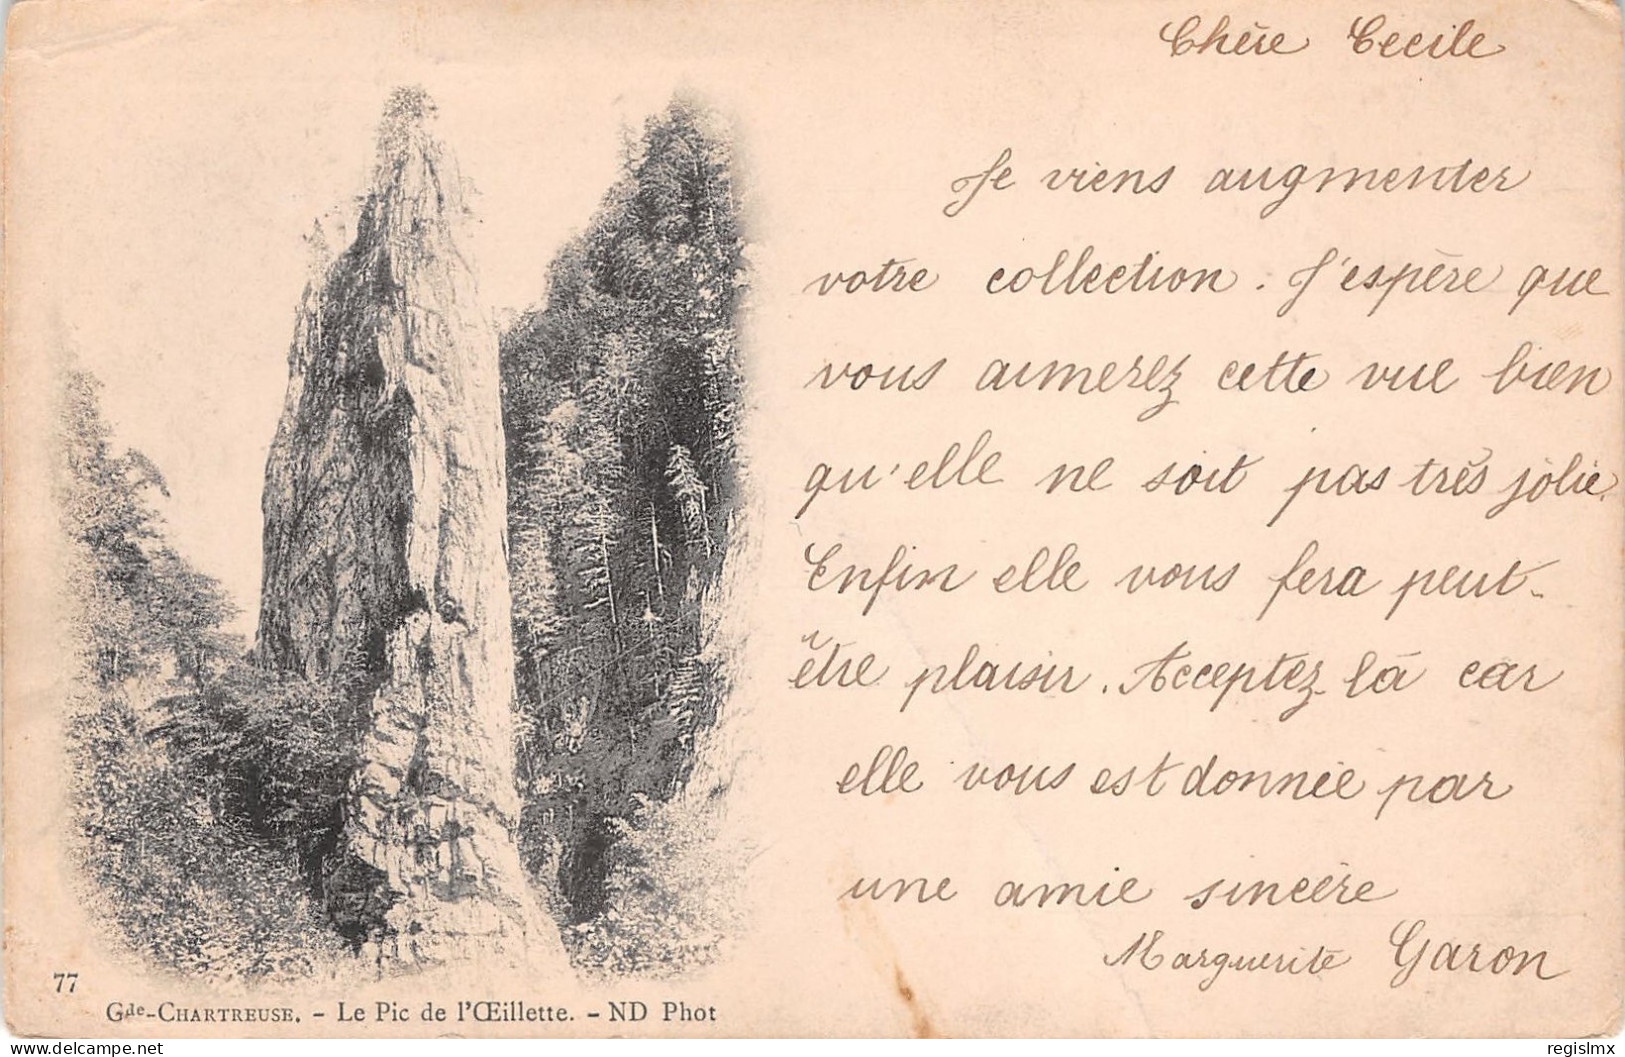 Chère Cecile
Je viens augmenter
votre collection. J'espère que
vous aimerez cette vue bien
qu'elle ne soit pas très jolie.
Enfin elle vous fera peut-
être plaisir. Acceptez-là car
elle vous est donnée par
une amie sincère
Marguerite Garon
77
Gde-CHARTREUSE. - Le Pic de l'Œillette. - ND Phot
delcampe.net
regislmx